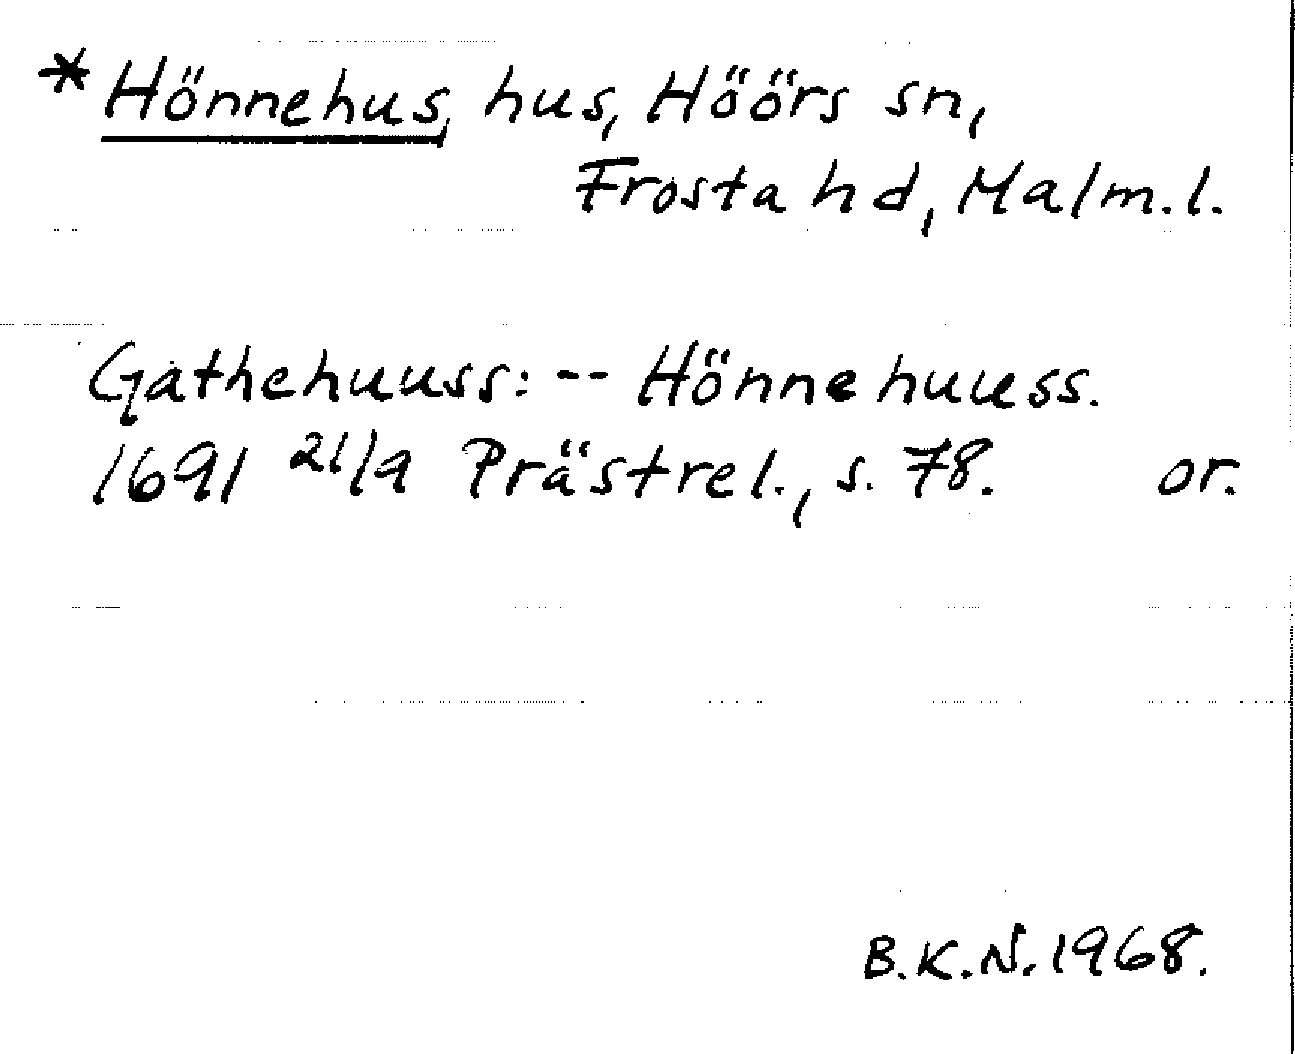 *Hönnehus, hus, Höörs sn,
Frosta hd, Malm.l.
Gathehuuss: -- Hönnehuuss.
1691 21/9 Prästrel., s. 78. or.
B.K.N. 1968.